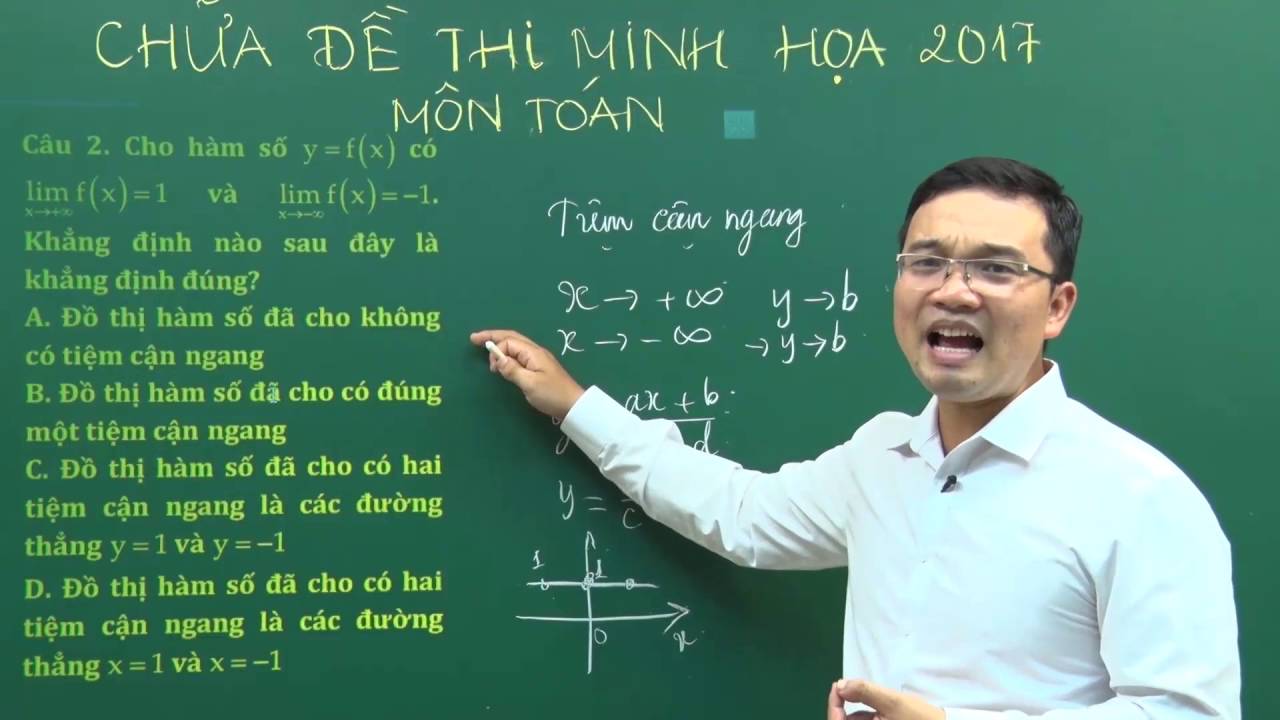 CHỮA ĐỀ THI MINH HỌA 2017
MÔN TOÁN
Câu 2. Cho hàm số y = f(x) có
lim f(x) = 1 và lim f(x) = −1.
x→+∞ x→−∞
Khẳng định nào sau đây là
khẳng định đúng?
A. Đồ thị hàm số đã cho không
có tiệm cận ngang
B. Đồ thị hàm số đã cho có đúng
một tiệm cận ngang
C. Đồ thị hàm số đã cho có hai
tiệm cận ngang là các đường
thẳng y = 1 và y = −1
D. Đồ thị hàm số đã cho có hai
tiệm cận ngang là các đường
thẳng x = 1 và x = −1
Tiệm cận ngang
x → +∞ y → b
x → −∞ → y → b
ax + b
d
y =
c
1 1
0 x